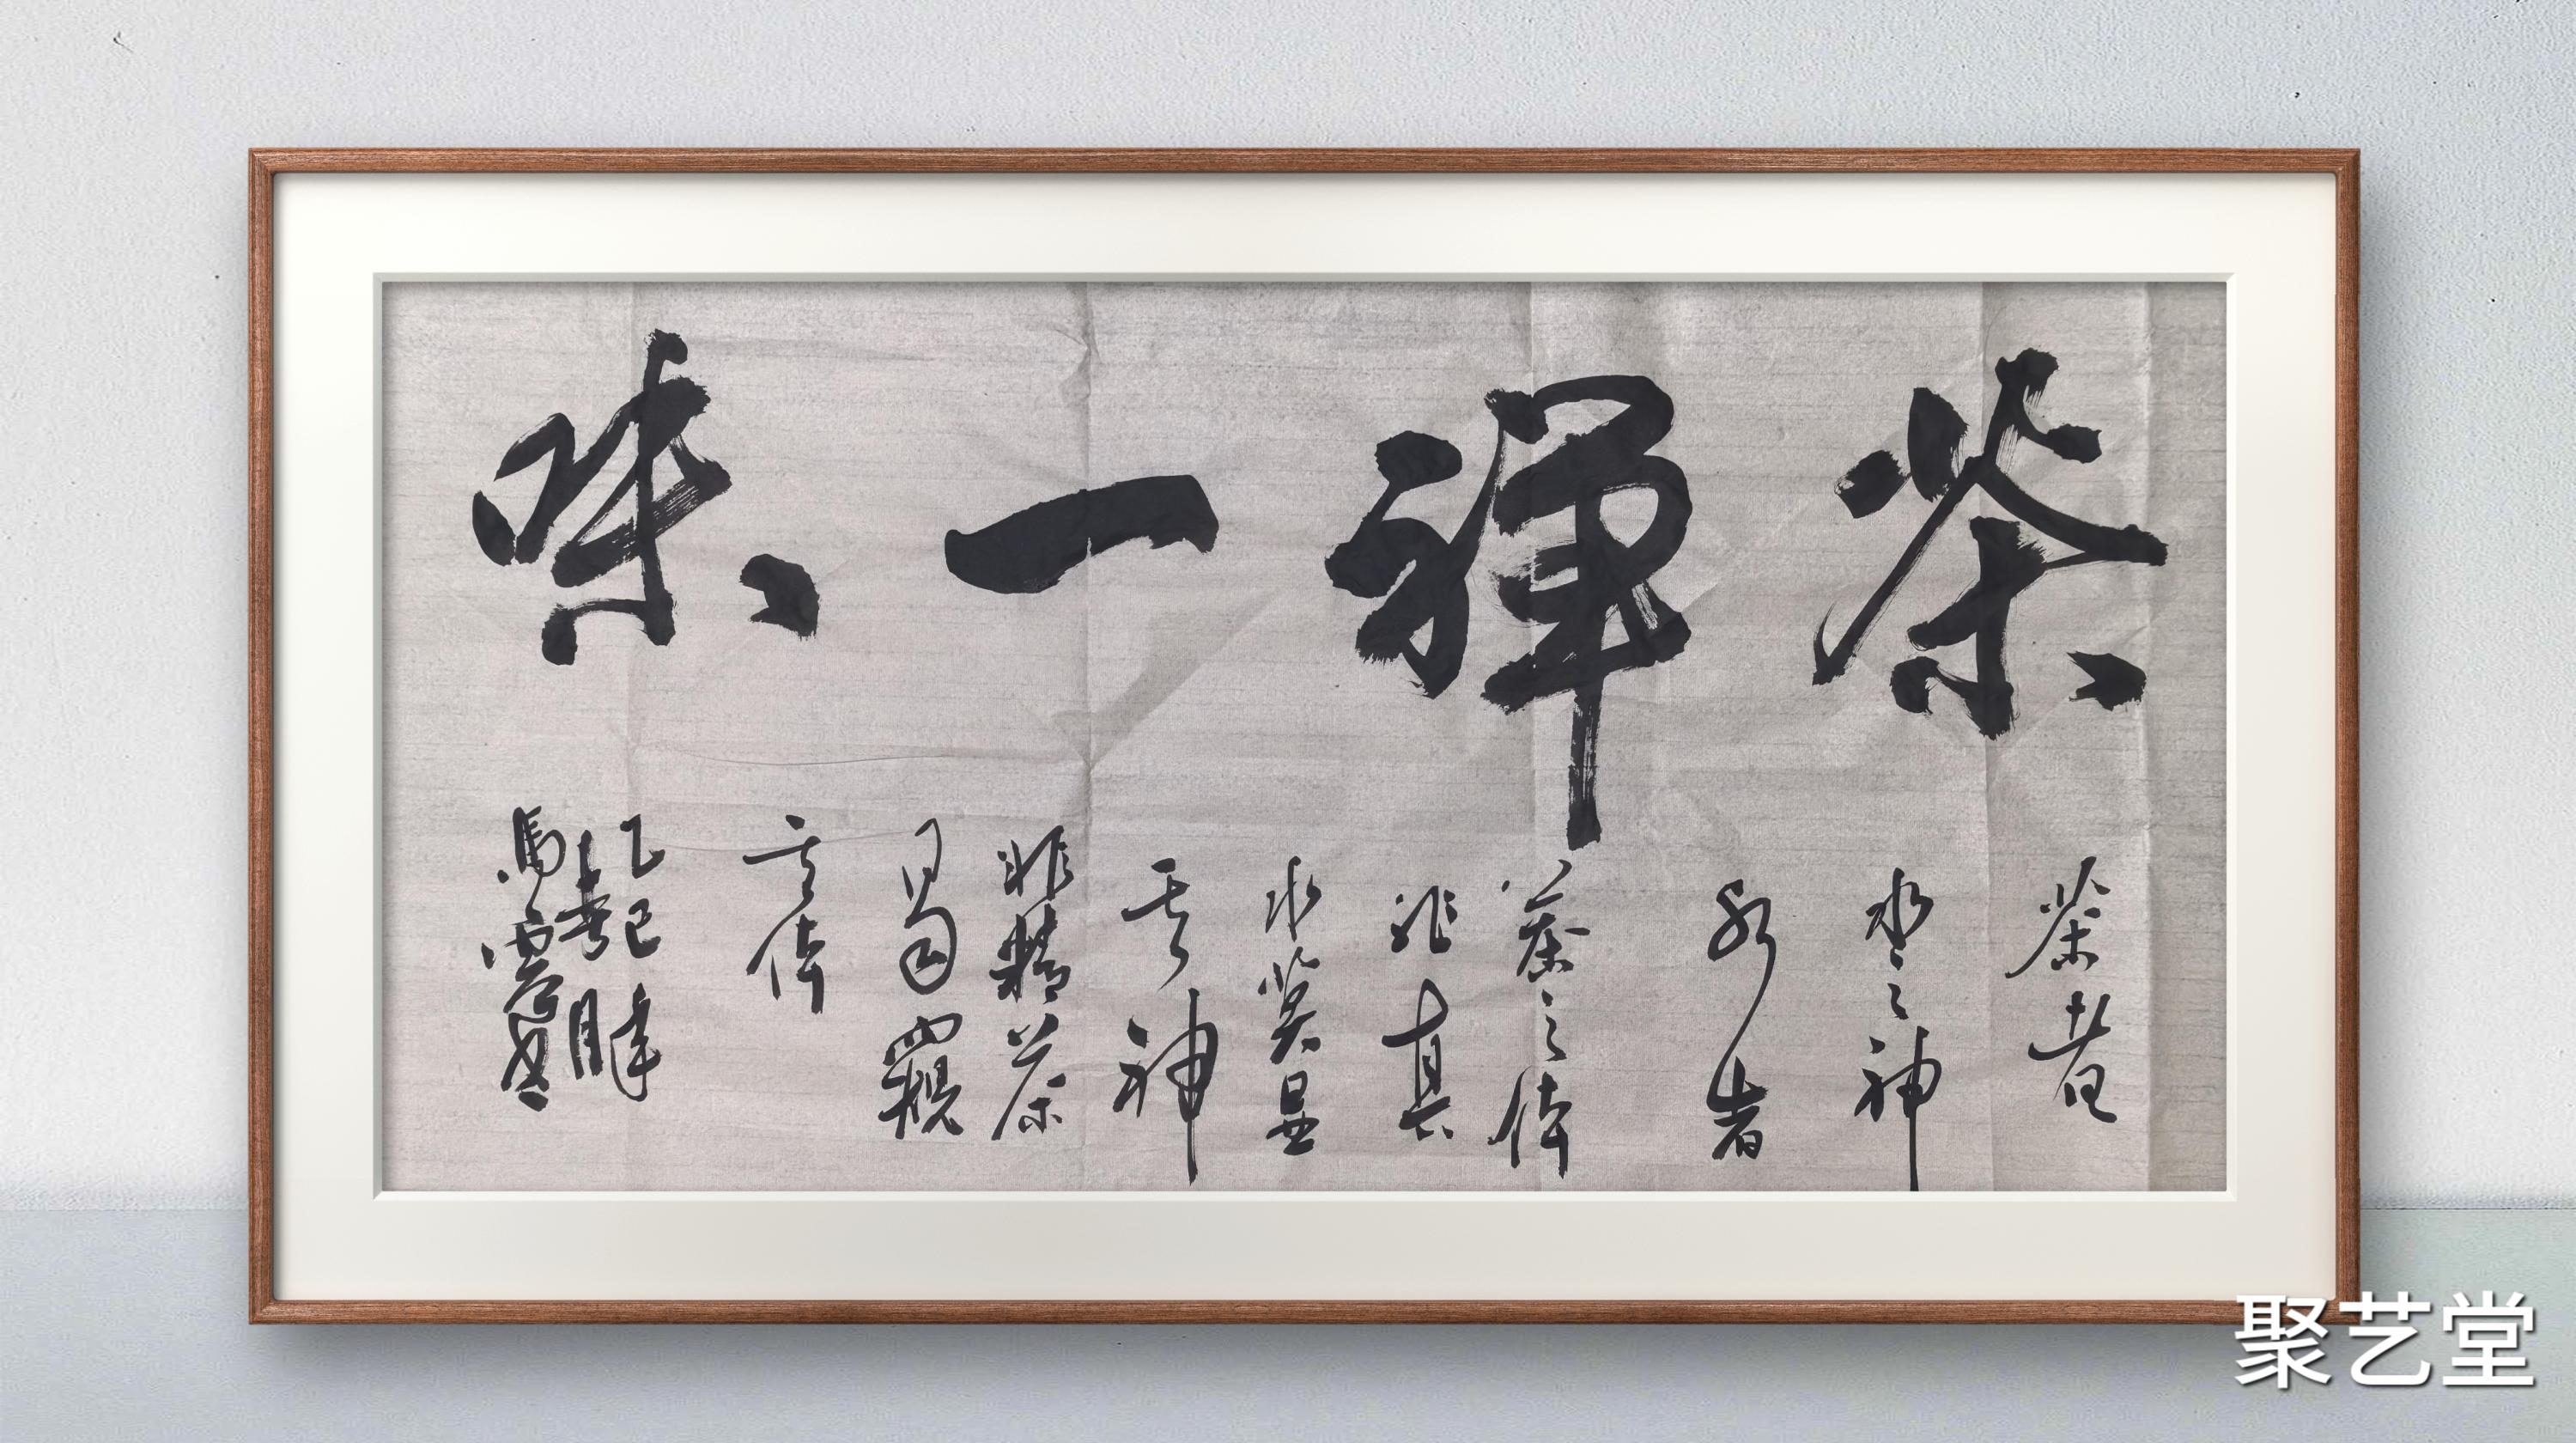 茶禪一味
茶者
水之神
水者
茶之体
非真
水莫显
其神
非精茶
曷窺
其体
乙巳
春月
馬
聚艺堂